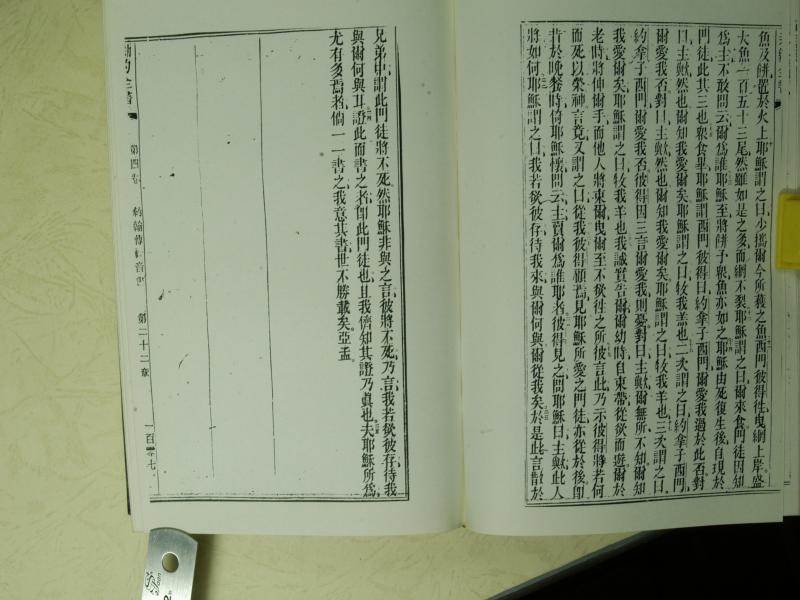 魚及餅置於火上耶穌謂之曰少攜爾今所獲之魚西門彼得徃曳網上岸盛
大魚一百五十三尾然雖如是之多而網不裂耶穌謂之曰爾來食門徒因知
為主不敢問云爾為誰耶穌至將餅予衆魚亦如之耶穌由死復生後自現於
門徒此其三也衆食畢耶穌謂西門彼得曰約拿子西門爾愛我過於此否對
曰主歟然也爾知我愛爾矣耶穌謂之曰牧我羔也二次謂之曰約拿子西門
爾愛我否對曰主歟然也爾知我愛爾矣耶穌謂之曰牧我羊也三次謂之曰
約拿子西門爾愛我否彼得因三言爾愛我則憂對曰主歟爾無所不知爾知
我愛爾矣耶穌謂之曰牧我羊也我誠實告爾爾幼時自束帶從欲而遊爾於
老時將伸爾手而他人將束爾曳爾至不欲徃之所彼言此乃示彼得將若何
而死以榮神言竟又謂之曰從我彼得顧焉見耶穌所愛之門徒亦從於後卽
昔於晚餐時倚耶穌懷問云主賣爾為誰耶者彼得見之問耶穌曰主歟此人
將如何耶穌謂之曰我若欲彼存待我來與爾何與爾從我矣於是此言散於
兄弟中謂此門徒將不死然耶穌非與之言彼將不死乃言我若欲彼存待我
與爾何與耳證此而書之者卽此門徒也且我儕知其證乃眞也夫耶穌所為
尤有多焉者倘一一書之我意其書世不勝載矣亞孟
第四卷
約翰傳福音書
第二十二章
一百零七